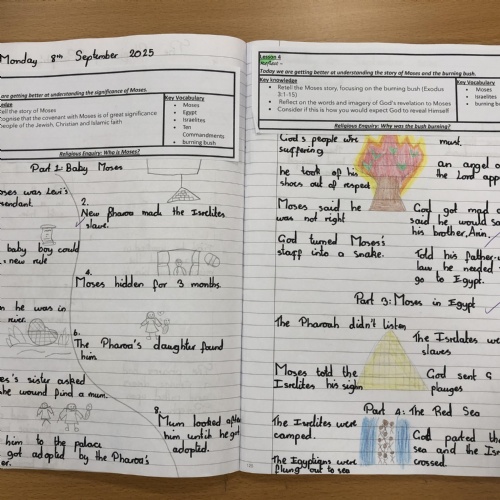 Monday 8th September 2025
are getting better at understanding the significance of Moses.
Key Vocabulary
tell the story of Moses
the covenant with Moses is of great significance
People of the Jewish, Christian and Islamic faith
• Moses
• Egypt
• Israelites
• Ten
Commandments
• burning bush
Religious Enquiry: Who is Moses?
Part 1: Baby Moses
was Levi's
2.
New Pharoa made the Isrelites
slave.
baby boy could
new rule
4.
Moses hidden for 3 months.
he was in
river.
6.
The Pharoa's daughter found
him
sister asked
she wound find a mum.
8.
Mum looked after
him untih he got
adopted.
him to the palace
got adopted by the Pharoa's
Lesson 4
Today we are getting better at understanding the story of Moses and the burning bush.
Key knowledge
Key Vocabulary
• Retell the Moses story, focusing on the burning bush (Exodus
3:1-15)
• Reflect on the words and imagery of God's revelation to Moses
• Consider if this is how you would expect God to reveal Himself
• Moses
• Israelites
• burning
Religious Enquiry: Why was the bush burning?
God's people were
suffering
must.
an angel of
the Lord
he took of his
shoes out of resped
Moses said he
was not right
God got mad
said he would
his brother,
God turned Moses's
staff into a snake.
Told his father-
law he needed
go to Egypt.
Part 3: Moses in Egypt
The Pharoah didn't listen
The Isrdates
slaves
Moses told the
Isrelites his
God sent
plauges
Part 4: The Red Sea
The Isrelites were
camped.
God parted the
sea and the
crossed.
The Egyptians were
flung out to sea